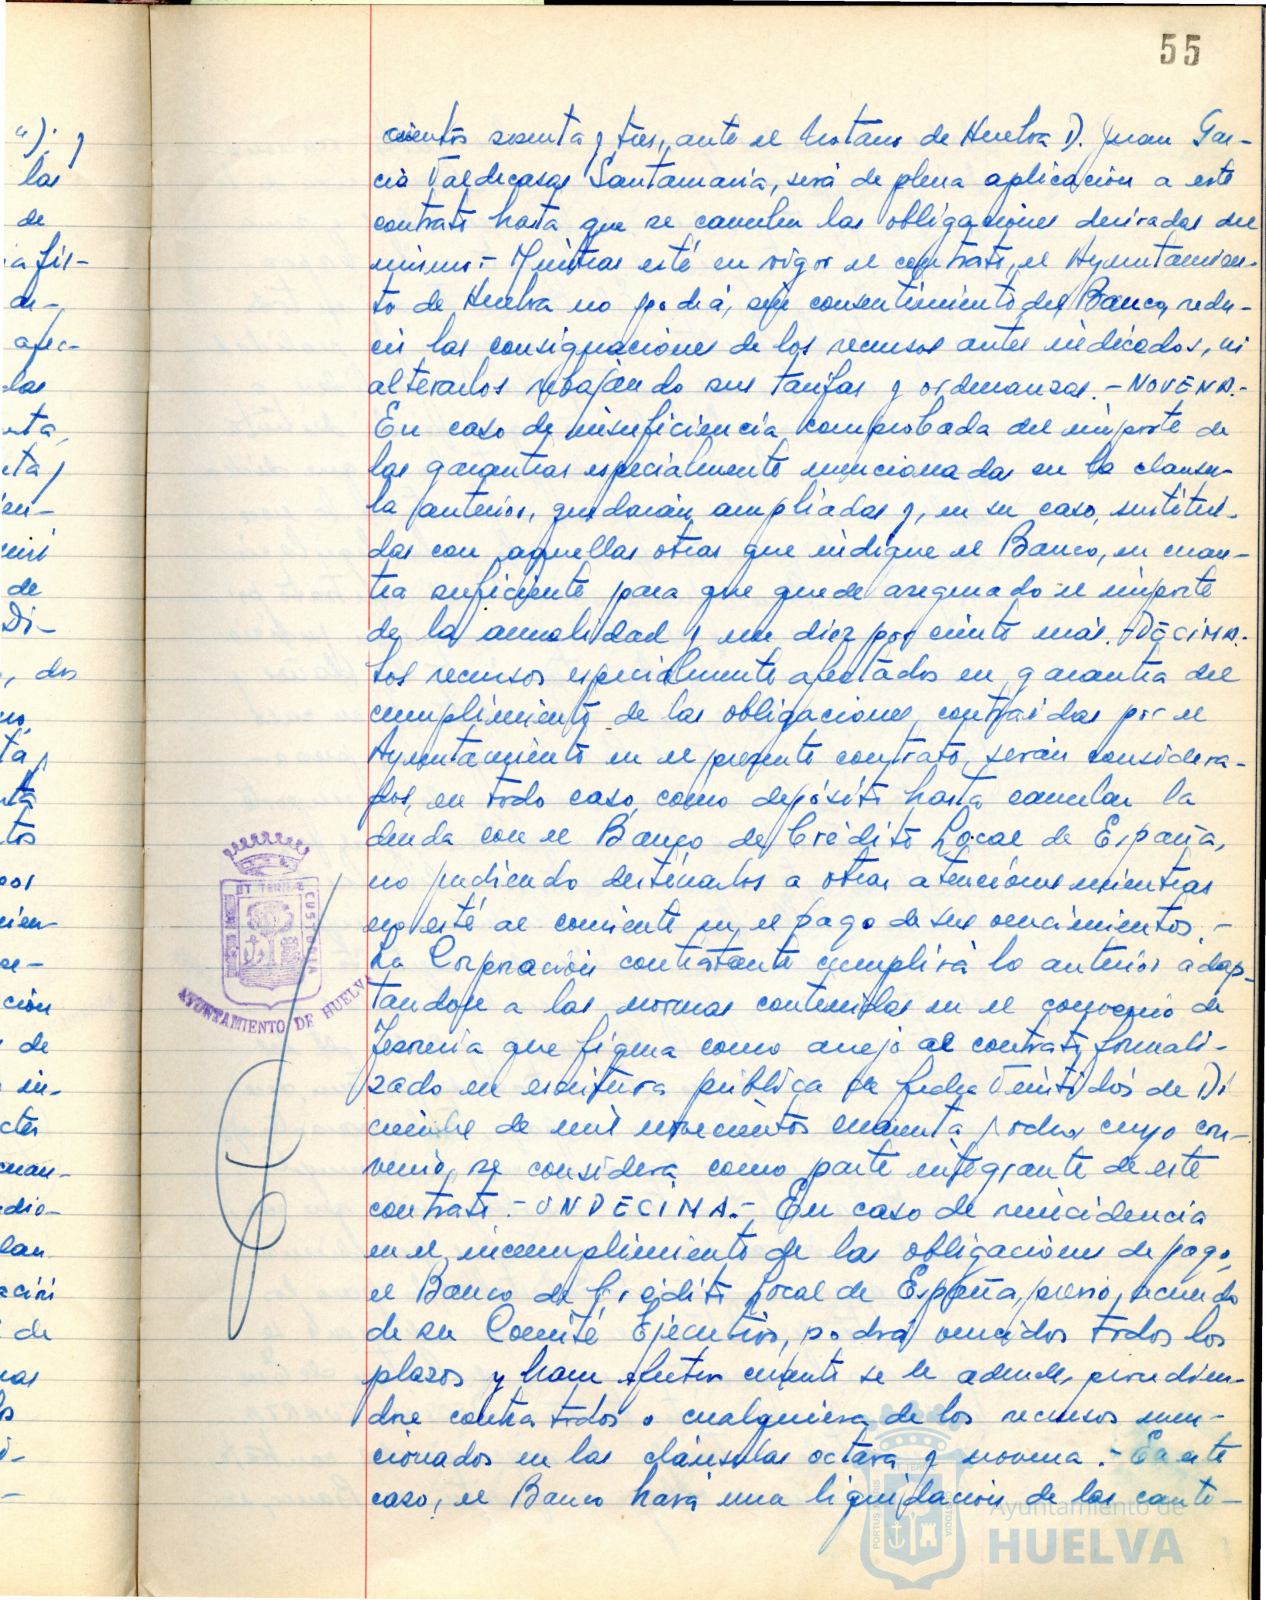 55
cientos sesenta y tres, ante el Notario de Huelva D. Juan Gar-
cia Valdecasas Santamaria, será de plena aplicación a este
contrato hasta que se cancelen las obligaciones derivadas del
mismo.- Mientras esté en vigor el contrato, el Ayuntamien-
to de Huelva no podrá, sin consentimiento del Banco, redu-
cir las consignaciones de los recursos antes indicados, ni
alterarlos rebajando sus tarifas y ordenanzas.- NOVENA.-
En caso de insuficiencia comprobada del importe de
las garantias especialmente mencionadas en la clausu-
la anterior, quedarán ampliadas y, en su caso, sustitui-
das con aquellas otras que indique el Banco, en cuan-
tia suficiente para que quede asegurado el importe
de la anualidad y un diez por ciento más.- DÉCIMA.
Los recursos especialmente afectados en garantia del
cumplimiento de las obligaciones contraidas por el
Ayuntamiento en el presente contrato, serán considera-
dos, en todo caso, como depósito hasta cancelar la
deuda con el Banco de Crédito Local de España,
no pudiendo destinarlos a otras atenciones mientras
no esté al corriente en el pago de sus vencimientos.-
La Corporación contratante cumplirá lo anterior adap-
tandose a las normas contenidas en el convenio de
Tesoreria que figura como anejo al contrato formali-
zado en escritura pública de fecha Veintidós de Di
ciembre de mil novecientos cincuenta y ocho, cuyo con-
venio, se considera como parte integrante de este
contrato.- UNDECIMA.- En caso de reincidencia
en el incumplimiento de las obligaciones de pago,
el Banco de Crédito Local de España, previo acuerdo
de su Comité Ejecutivo, podrá vencidos todos los
plazos y hacer efectivo cuanto se le adeude, procedien-
dose contra todos o cualquiera de los recursos men-
cionados en las cláusulas octava y novena.- En este
caso, el Banco hará una liquidación de las canti-
ET TERRAE CUSTODIA
AYUNTAMIENTO DE HUELVA
PORTUS MARIS
CUSTODIA
Ayuntamiento de
HUELVA
"); y
las
de
a fis-
apec-
las
de
Di-
, dos
tos
cien-
ción
de
in-
cuan-
dio-
lan
de